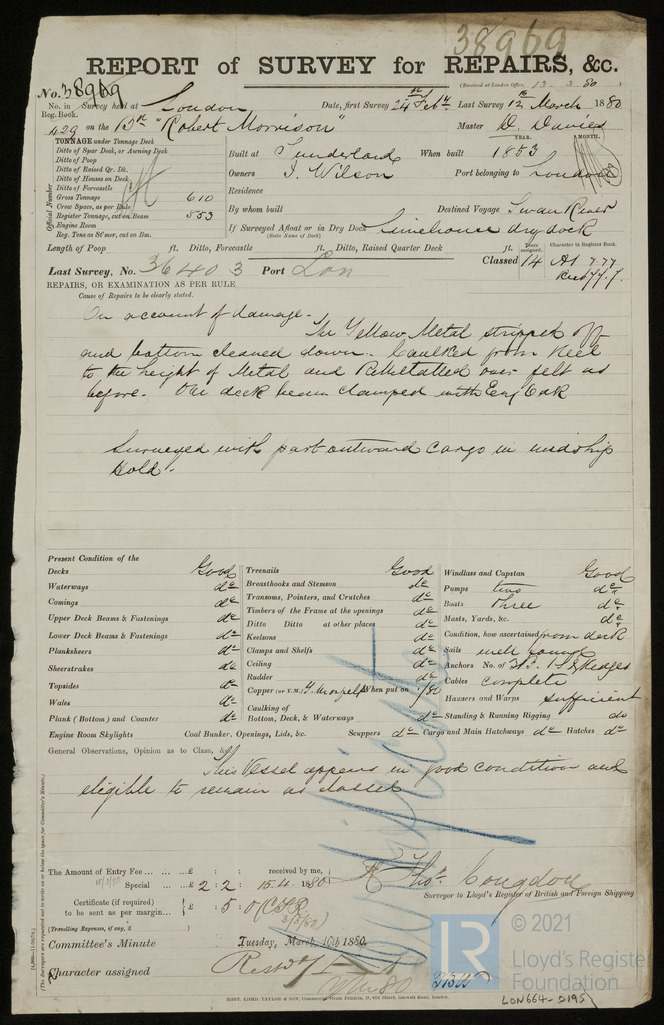 38969
REPORT of SURVEY for REPAIRS, &c.
No. 38969
(Received at London Office, 13.3.80)
No. in Reg. Book. 429
Survey held at London
Date, first Survey 24th Feby
Last Survey 12th March 1880
on the "Robert Morrison"
Master D Davies
TONNAGE under Tonnage Deck
Ditto of Spar Deck, or Awning Deck
Ditto of Poop
Ditto of Raised Qr. Dk.
Ditto of Houses on Deck
Ditto of Forecastle
Gross Tonnage 610
Crew Space, as per Rule
Register Tonnage, cut on Beam 553
Engine Room
Reg. Tons as St'mer, cut on Bm.
Official Number
Built at Sunderland
When built YEAR. 1853 MONTH.
Owners J. Wilson
Port belonging to London
Residence
By whom built
Destined Voyage Swan River
If Surveyed Afloat or in Dry Dock Limehouse dry dock
(State Name of Dock)
Length of Poop ft. Ditto, Forecastle ft. Ditto, Raised Quarter Deck ft.
Years assigned.
Character in Register Book.
Last Survey, No. 36403 Port Lon
Classed 14 A1 7.77
REPAIRS, OR EXAMINATION AS PER RULE
Cause of Repairs to be clearly stated.
On account of damage.
The Yellow Metal stripped off
and bottom cleaned down. Caulked from Keel
to the height of Metal and Remetalled over felt as
before. One deck beam clamped with Eng Oak
Surveyed with part outward Cargo in midship
Hold.
Present Condition of the
Decks Good
Waterways do
Comings do
Upper Deck Beams & Fastenings do
Lower Deck Beams & Fastenings do
Planksheers do
Sheerstrakes do
Topsides do
Wales do
Plank (Bottom) and Counter do
Engine Room Skylights
Treenails Good
Breasthooks and Stemson do
Transoms, Pointers, and Crutches do
Timbers of the Frame at the openings do
Ditto Ditto at other places do
Keelsons do
Clamps and Shelfs do
Ceiling do
Rudder do
Copper (or Y.M.) When put on /80
Caulking of
Bottom, Deck, & Waterways do
Coal Bunker, Openings, Lids, &c.
Scuppers do
Windlass and Capstan Good
Pumps two do
Boats three do
Masts, Yards, &c. do
Condition, how ascertained from deck
Sails well found
Anchors No. of
Cables complete
Hawsers and Warps sufficient
Standing & Running Rigging do
Cargo and Main Hatchways do Hatches do
General Observations, Opinion as to Class, &c.
This Vessel appears in good condition and
eligible to remain as classed
The Amount of Entry Fee ... £ : : received by me,
Special ... £ 2 : 2 : 15.4.1880
Certificate (if required) to be sent as per margin... £ : 5 : 0
(Travelling Expenses, if any, £ )
Thos. Congdon
Surveyor to Lloyd's Register of British and Foreign Shipping
Committee's Minute
Tuesday, March 16th 1880.
Character assigned
© 2021
Lloyd's Register
Foundation
LR
LON664-0195